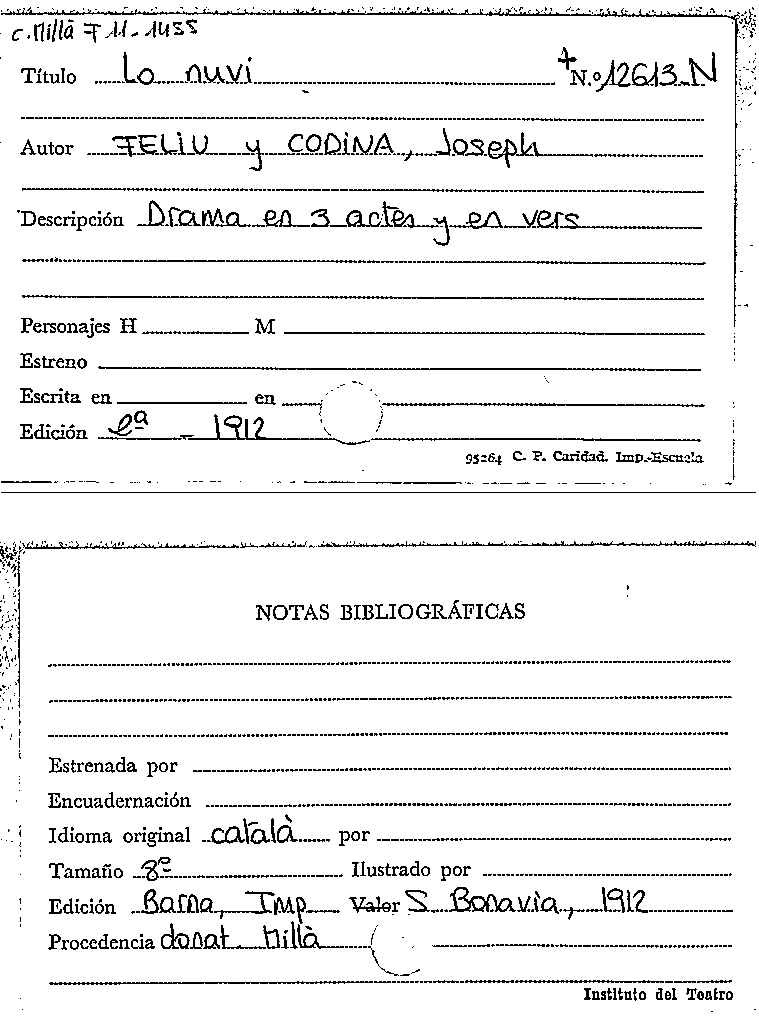 c. Millà F 11-1455
Título Lo nuvi + N.º 12613 N
Autor FELIU y CODINA, Joseph
Descripción Drama en 3 actes y en vers
Personajes H M
Estreno
Escrita en en
Edición 2ª - 1912
95264 C. P. Caridad. Imp.-Escuela
NOTAS BIBLIOGRÁFICAS
Estrenada por
Encuadernación
Idioma original català por
Tamaño 8º Ilustrado por
Edición Barna, Imp Valor S Bonavia, 1912
Procedencia donat Millà
Instituto del Teatro